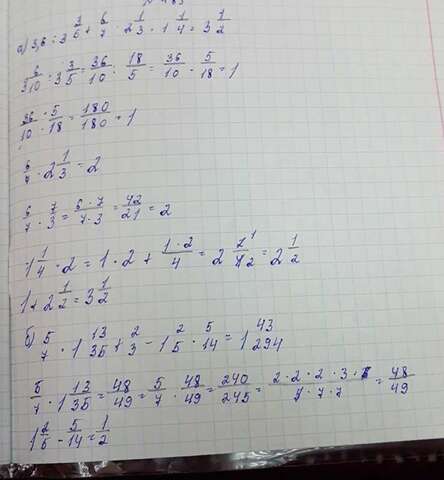 а) 3,6 : 3 3/5 + 6/7 · 2 1/3 · 1 1/4 = 3 1/2
3 6/10 : 3 3/5 = 36/10 : 18/5 = 36/10 · 5/18 = 1
36 · 5/10 · 18 = 180/180 = 1
6/7 · 2 1/3 = 2
6/7 · 7/3 = 6 · 7/7 · 3 = 42/21 = 2
1 1/4 · 2 = 1 · 2 + 1 · 2/4 = 2 2 1/4 2 = 2 1/2
1 + 2 1/2 = 3 1/2
б) 5/7 · 1 13/35 + 2/3 - 1 2/5 · 5/14 = 1 43/294
5/7 · 1 13/35 = 48/49 = 5/7 · 48/49 = 240/245 = 2 · 2 · 2 · 2 · 3 · 5/7 · 7 · 7 = 48/49
1 2/5 - 5/14 = 1/2